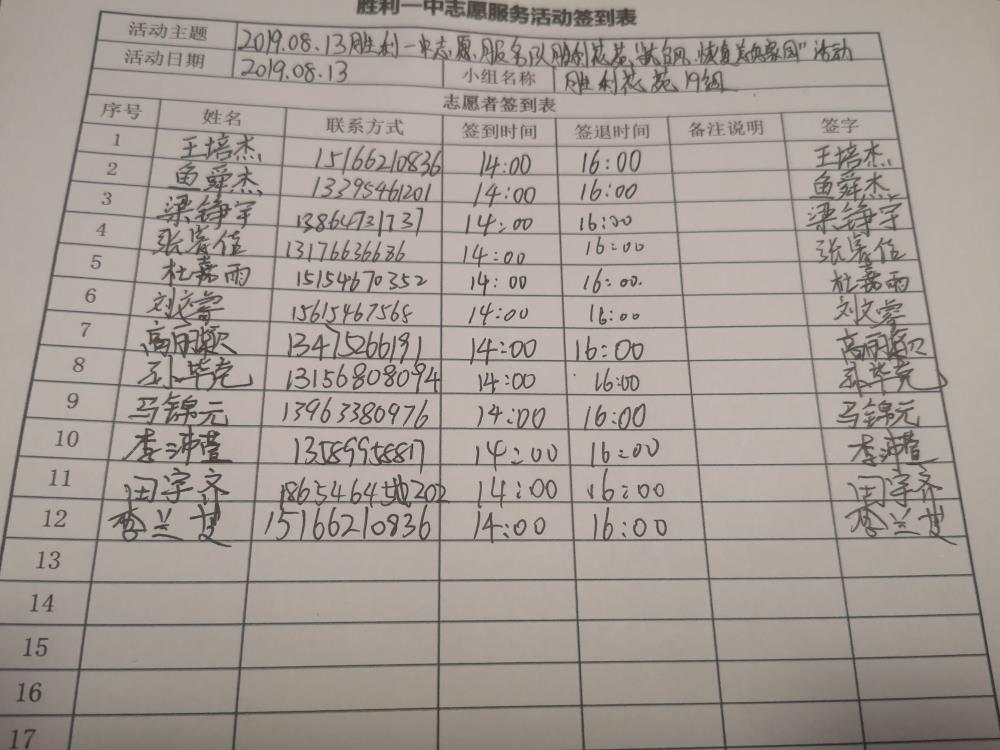 胜利一中志愿服务活动签到表
活动主题 2019.08.13胜利一中志愿服务队胜利花苑 恢复美丽家园"活动
活动日期 2019.08.13 小组名称 胜利花苑19组
志愿者签到表
序号 姓名 联系方式 签到时间 签退时间 备注说明 签字
1 王培杰 15166210836 14:00 16:00 王培杰
2 鱼舜杰 13395461201 14:00 16:00 鱼舜杰
3 梁铮宇 13864731737 14:00 16:00 梁铮宇
4 张 信 13176636686 14:00 16:00 张 信
5 杜嘉雨 15154670352 14:00 16:00. 杜嘉雨
6 刘文睿 15615467568 14:00 16:00 刘文睿
7 高丽颖 13475266191 14:00 16:00 高丽颖
8 孙毕竞 13156808094 14:00 16:00 孙毕竞
9 马锦元 13963380976 14:00 16:00 马锦元
10 李沛萱 13589958817 14:00 16:00 李沛萱
11 闫宇齐 14:00 16:00 闫宇齐
12 李兰芝 15166210836 14:00 16:00 李兰芝
13
14
15
16
17